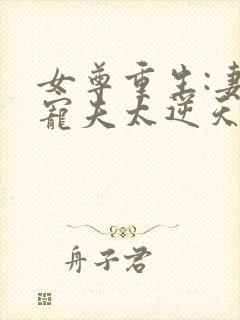 女尊重生:妻
寵夫太逆天
舟子君